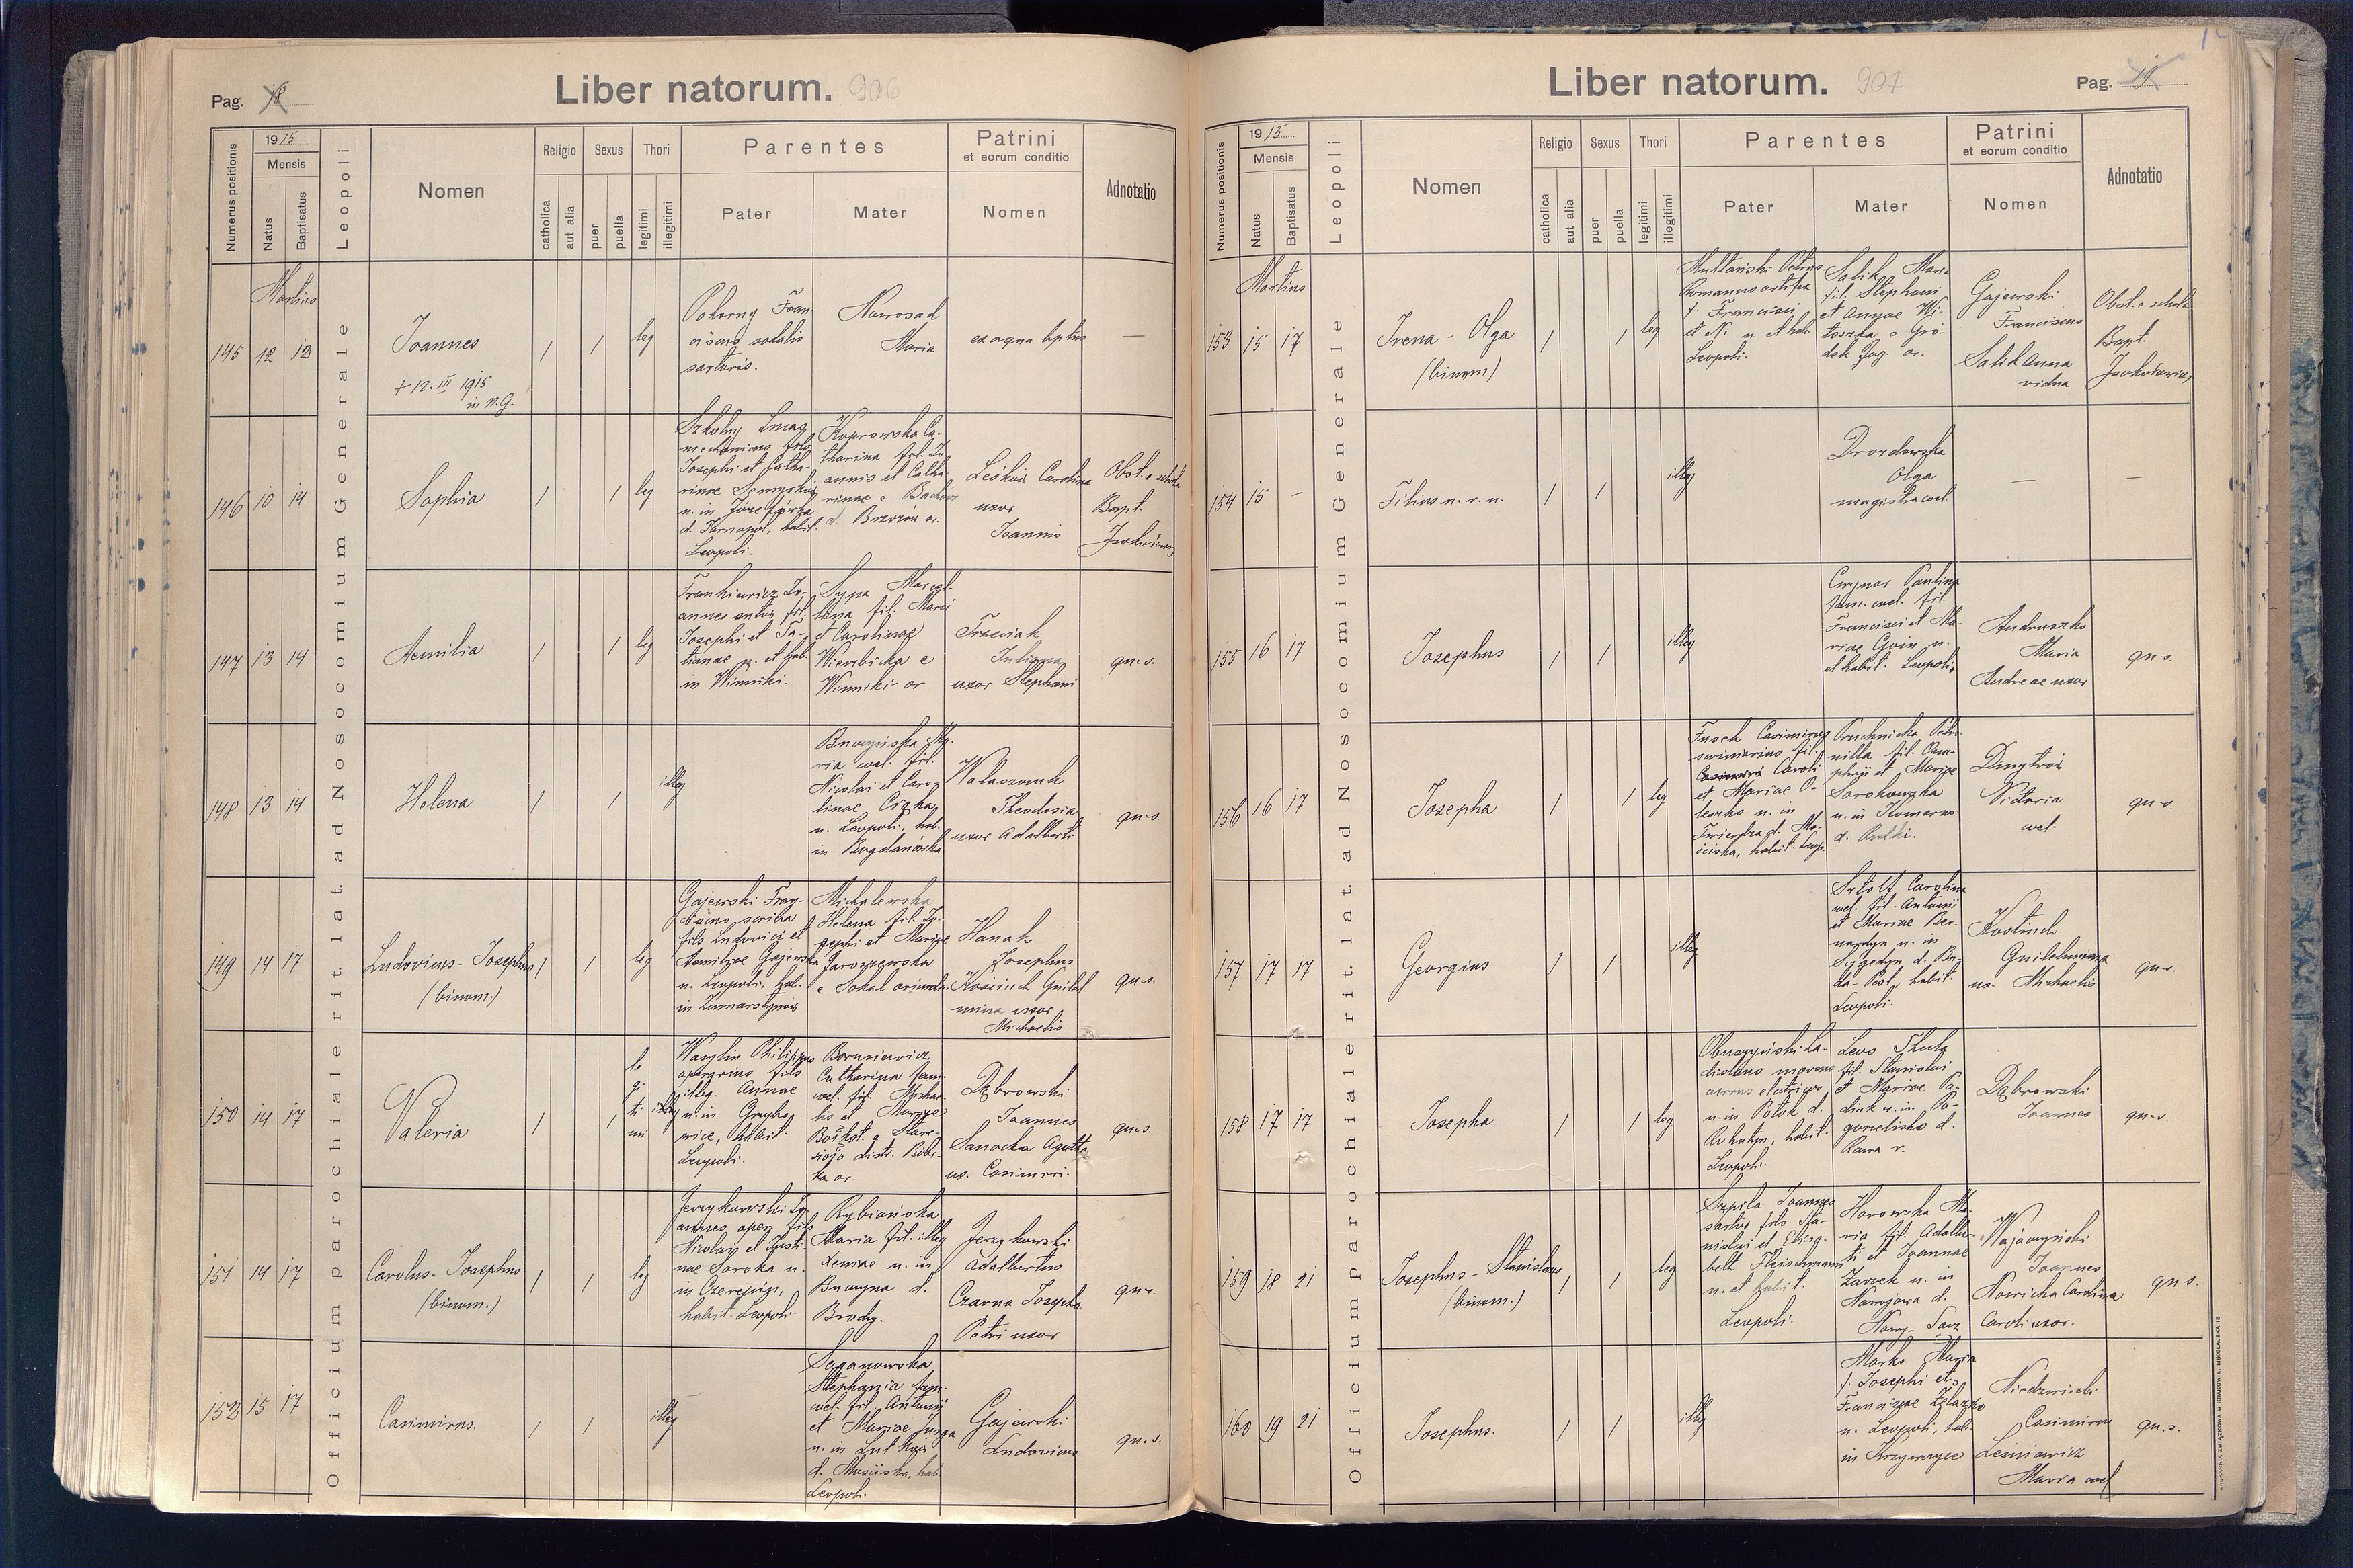 Pag. 18
Liber natorum. 906
Numerus positionis
1915
Mensis
Natus
Baptisatus
Leopoli
Nomen
Religio
catholica
aut alia
Sexus
puer
puella
Thori
legitimi
illegitimi
Parentes
Pater
Mater
Patrini
et eorum conditio
Nomen
Adnotatio
Officium parochiale rit lat ad Nosocomium Generale
Martius
145 12 12
Joannes
+ 12. III 1915
in N.G.
1 1 leg
Pokorny Fran-
ciscus sodalis
sartoris.
Nawrosad
Maria
ex aqua bptus
—
146 10 14
Sophia
1 1 leg
Szkolny Ignac
mechanicus fils
Josephi et Catha-
rinae
d. Tarnopol, habit.
Leopoli.
Koprowska Ca-
tharina fil. Jo-
annis et Catha-
rinae e
d. Brzozów or.
Leśków Carolina
uxor
Joannis
Obst. e schola
Bapt.
147 13 14
Aemilia
1 1 leg
Frankiewicz Jo-
annes sutor fil.
Josephi et Ta-
tianae n. et hab.
in Winniki.
Sypa Marcel-
lina fil. Marci
et Carolinae
Wierzbicka e
Winniki or.
Trzeciak
Julianna
uxor Stephani
qu. s.
148 13 14
Helena
1 1 illeg
Ma-
ria cael. fil.
Nicolai et Caro-
linae Cicha
n. Leopoli, hab.
in Bogdanówka
Walaszczuk
Theodosia
uxor Adalberti
qu. s.
149 14 17
Ludovicus - Josephus
(binom.)
1 1 leg
Gajewski Fran-
ciscus scriba
fils Ludovici et
Aemiliae Gajewska
n. Leopoli, hab.
in Zamarstynów
Michalewska
Helena fil. Jo-
sephi et Mariae
Jaroszewska
e Sokal oriunda.
Hanak
Josephus
Kościuch Guilel-
mina uxor
Michaelis
qu. s.
150 14 17
Valeria
1 1
le
gi
ti
mi
illeg
Wasylin Philippus
operarius fils
illeg. Annae
n. in Grzybo-
wice, habit.
Leopoli.
Borusiewicz
Catharina fam.
cael. fil. Micha-
lis et Mariae
e Stare-
sioło distr. Bobr-
ka or.
Dąbrowski
Joannes
Sanocka Agatha
ux. Casimiri.
qu. s.
151 14 17
Carolus - Josephus
(binom.)
1 1 leg
Jerzykowski Jo-
annes oper. fils
Nicolai et Justi-
nae Soroka n.
in Czerepin,
habit. Leopoli.
Rybiańska
Maria fil. illeg
Xeniae n. in
d.
Brody.
Jerzykowski
Adalbertus
Czarna Josepha
Petri uxor
qu. s.
152 15 17
Casimirus.
1 1 illeg
Saganowska
Stephania fam.
cael. fil. Antonii
et Mariae
n. in Lutków
d. Mościska, hab.
Leopoli.
Gajewski
Ludovicus
qu. s.
Liber natorum. 907
Pag. 19
Numerus positionis
1915
Mensis
Natus
Baptisatus
Leopoli
Nomen
Religio
catholica
aut alia
Sexus
puer
puella
Thori
legitimi
illegitimi
Parentes
Pater
Mater
Patrini
et eorum conditio
Nomen
Adnotatio
Officium parochiale rit lat ad Nosocomium Generale
Martius
153 15 17
Irena - Olga
(binom)
1 1 leg
Multański Petrus
Romanus artifex
f. Francisci
et N. n. et hab.
Leopoli.
Salik Maria
fil. Stephani
et Annae Wi-
toszka e Gró-
dek Jag. or.
Gajewski
Franciscus
Salik Anna
vidua
Obst. e schola
Bapt.
154 15 -
Filius n. r. n.
1 1 illeg
Drozdowska
Olga
magistra cael.
—
—
155 16 17
Josephus
1 1 illeg
Cwynar Paulina
fam. cael. fil.
Francisci et Ma-
riae n.
et habit. Leopoli.
Andruszko
Maria
Andreae uxor
qu. s.
156 16 17
Josepha
1 1 leg
Fusch Casimirus
fil.
Caroli
et Mariae O-
leszko n. in
Twierdza d. Mo-
ściska, habit. Leop.
Pruchnicka Petro-
nilla fil. Onu-
phrii et Mariae
n. in Komarno
d. Rudki.
Dmytrów
Victoria
cael.
qu. s.
157 17 17
Georgius
1 1 illeg
Carolina
cael. fil. Antonii
et Mariae Ber-
nardyn n. in
d. Bu-
da-Pest, habit.
Leopoli.
Kościuch
Guilelmina
ux. Michaelis
qu. s.
158 17 17
Josepha
1 1 leg
Obuszyński La-
dislaus movens
currus electricos
n. in Potok d.
Rohatyn, habit.
Leopoli.
Lewo Thecla
fil. Stanislai
et Mariae Pa-
n. in Po-
gorzelisko d.
Rawa r.
Dąbrowski
Joannes
qu. s.
159 18 21
Josephus - Stanislaus
(binom.)
1 1 leg
Szpila Joannes
sartor fils Sta-
nislai et Elisa-
beth Fleischmann
n. et habit.
Leopoli.
Harowska Ma-
ria fil. Adalber-
ti et Joannae
Zarzek n. in
Nawojowa d.
Nowy-Sącz
Joannes
Nowicka Carolina
Caroli uxor.
qu. s.
160 19 21
Josephus.
1 1 illeg.
Marko Maria
f. Josephi et
Franciscae Żelazko
n. Leopoli, hab.
in Krzywczyce
Niedzwiecki
Casimirus
Leśniewicz
Maria cael
qu. s.
DRUKARNIA ZWIĄZKOWA W KRAKOWIE, MIKOŁAJSKA 13